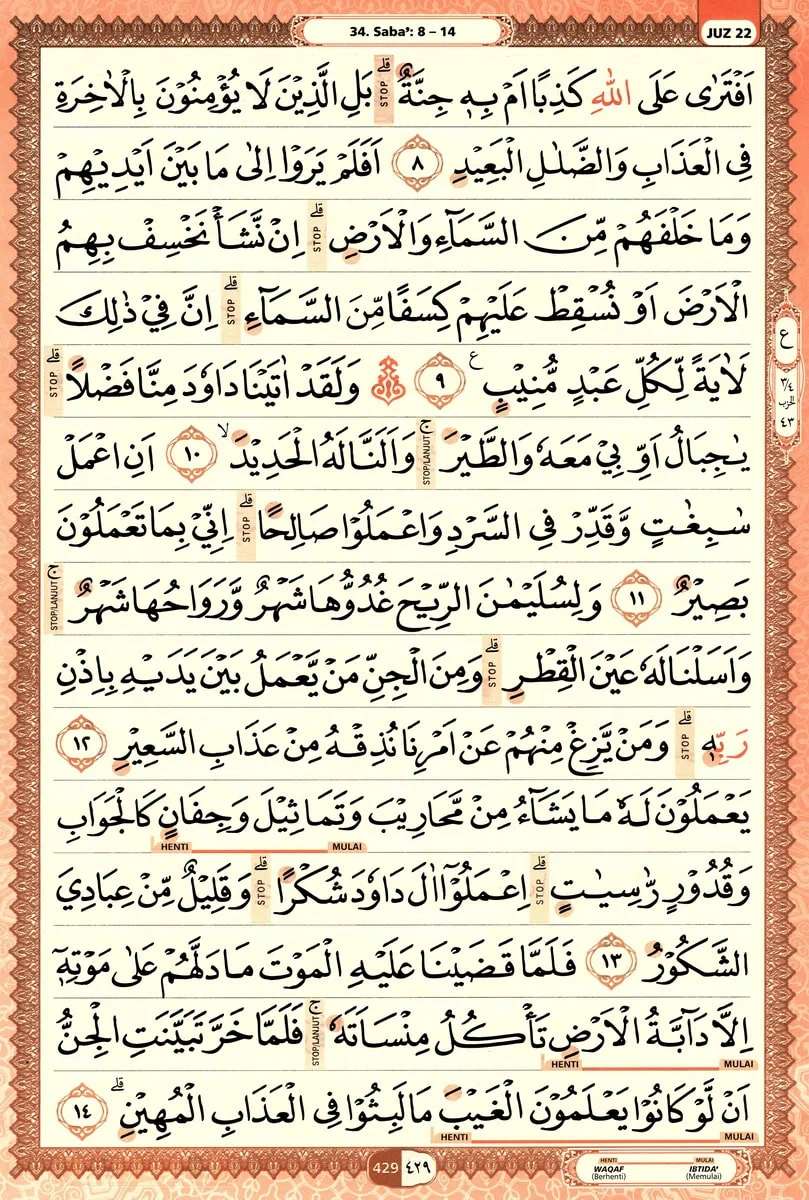 JUZ 22
34. Saba’: 8 – 14
اَفْتَرٰى عَلَى اللّٰهِ كَذِبًا اَمْ بِهٖ جِنَّةٌ ۗ STOP بَلِ الَّذِيْنَ لَا يُؤْمِنُوْنَ بِالْاٰخِرَةِ
فِى الْعَذَابِ وَالضَّلٰلِ الْبَعِيْدِ ٨ اَفَلَمْ يَرَوْا اِلٰى مَا بَيْنَ اَيْدِيْهِمْ
وَمَا خَلْفَهُمْ مِّنَ السَّمَاۤءِ وَالْاَرْضِ ۗ STOP اِنْ نَّشَأْ نَخْسِفْ بِهِمُ
الْاَرْضَ اَوْ نُسْقِطْ عَلَيْهِمْ كِسَفًا مِّنَ السَّمَاۤءِ ۗ STOP اِنَّ فِيْ ذٰلِكَ
لَاٰيَةً لِّكُلِّ عَبْدٍ مُّنِيْبٍ ࣖ ٩ ۞ وَلَقَدْ اٰتَيْنَا دَاوٗدَ مِنَّا فَضْلًا ۗ STOP
يٰجِبَالُ اَوِّبِيْ مَعَهٗ وَالطَّيْرَ ۚ STOP/LANJUT وَاَلَنَّا لَهُ الْحَدِيْدَ ۙ ١٠ اَنِ اعْمَلْ
سٰبِغٰتٍ وَّقَدِّرْ فِى السَّرْدِ وَاعْمَلُوْا صَالِحًا ۗ STOP اِنِّيْ بِمَا تَعْمَلُوْنَ
بَصِيْرٌ ١١ وَلِسُلَيْمٰنَ الرِّيْحَ غُدُوُّهَا شَهْرٌ وَّرَوَاحُهَا شَهْرٌ ۚ STOP/LANJUT
وَاَسَلْنَا لَهٗ عَيْنَ الْقِطْرِ ۗ STOP وَمِنَ الْجِنِّ مَنْ يَّعْمَلُ بَيْنَ يَدَيْهِ بِاِذْنِ
رَبِّهٖ ۗ STOP وَمَنْ يَّزِغْ مِنْهُمْ عَنْ اَمْرِنَا نُذِقْهُ مِنْ عَذَابِ السَّعِيْرِ ١٢
يَعْمَلُوْنَ لَهٗ مَا يَشَاۤءُ مِنْ مَّحَارِيْبَ وَتَمَاثِيْلَ وَجِفَانٍ كَالْجَوَابِ
HENTI MULAI
وَقُدُوْرٍ رّٰسِيٰتٍ ۗ STOP اِعْمَلُوْٓا اٰلَ دَاوٗدَ شُكْرًا ۗ STOP وَقَلِيْلٌ مِّنْ عِبَادِيَ
الشَّكُوْرُ ١٣ فَلَمَّا قَضَيْنَا عَلَيْهِ الْمَوْتَ مَا دَلَّهُمْ عَلٰى مَوْتِهٖٓ
اِلَّا دَاۤبَّةُ الْاَرْضِ تَأْكُلُ مِنْسَاَتَهٗ ۚ STOP/LANJUT فَلَمَّا خَرَّ تَبَيَّنَتِ الْجِنُّ
HENTI MULAI
اَنْ لَّوْ كَانُوْا يَعْلَمُوْنَ الْغَيْبَ مَا لَبِثُوْا فِى الْعَذَابِ الْمُهِيْنِ ۗ ١٤
HENTI MULAI
ع
٣/٤
الحزب
٤٣
429 ٤٢٩
HENTI MULAI
WAQAF IBTIDA’
(Berhenti) (Memulai)